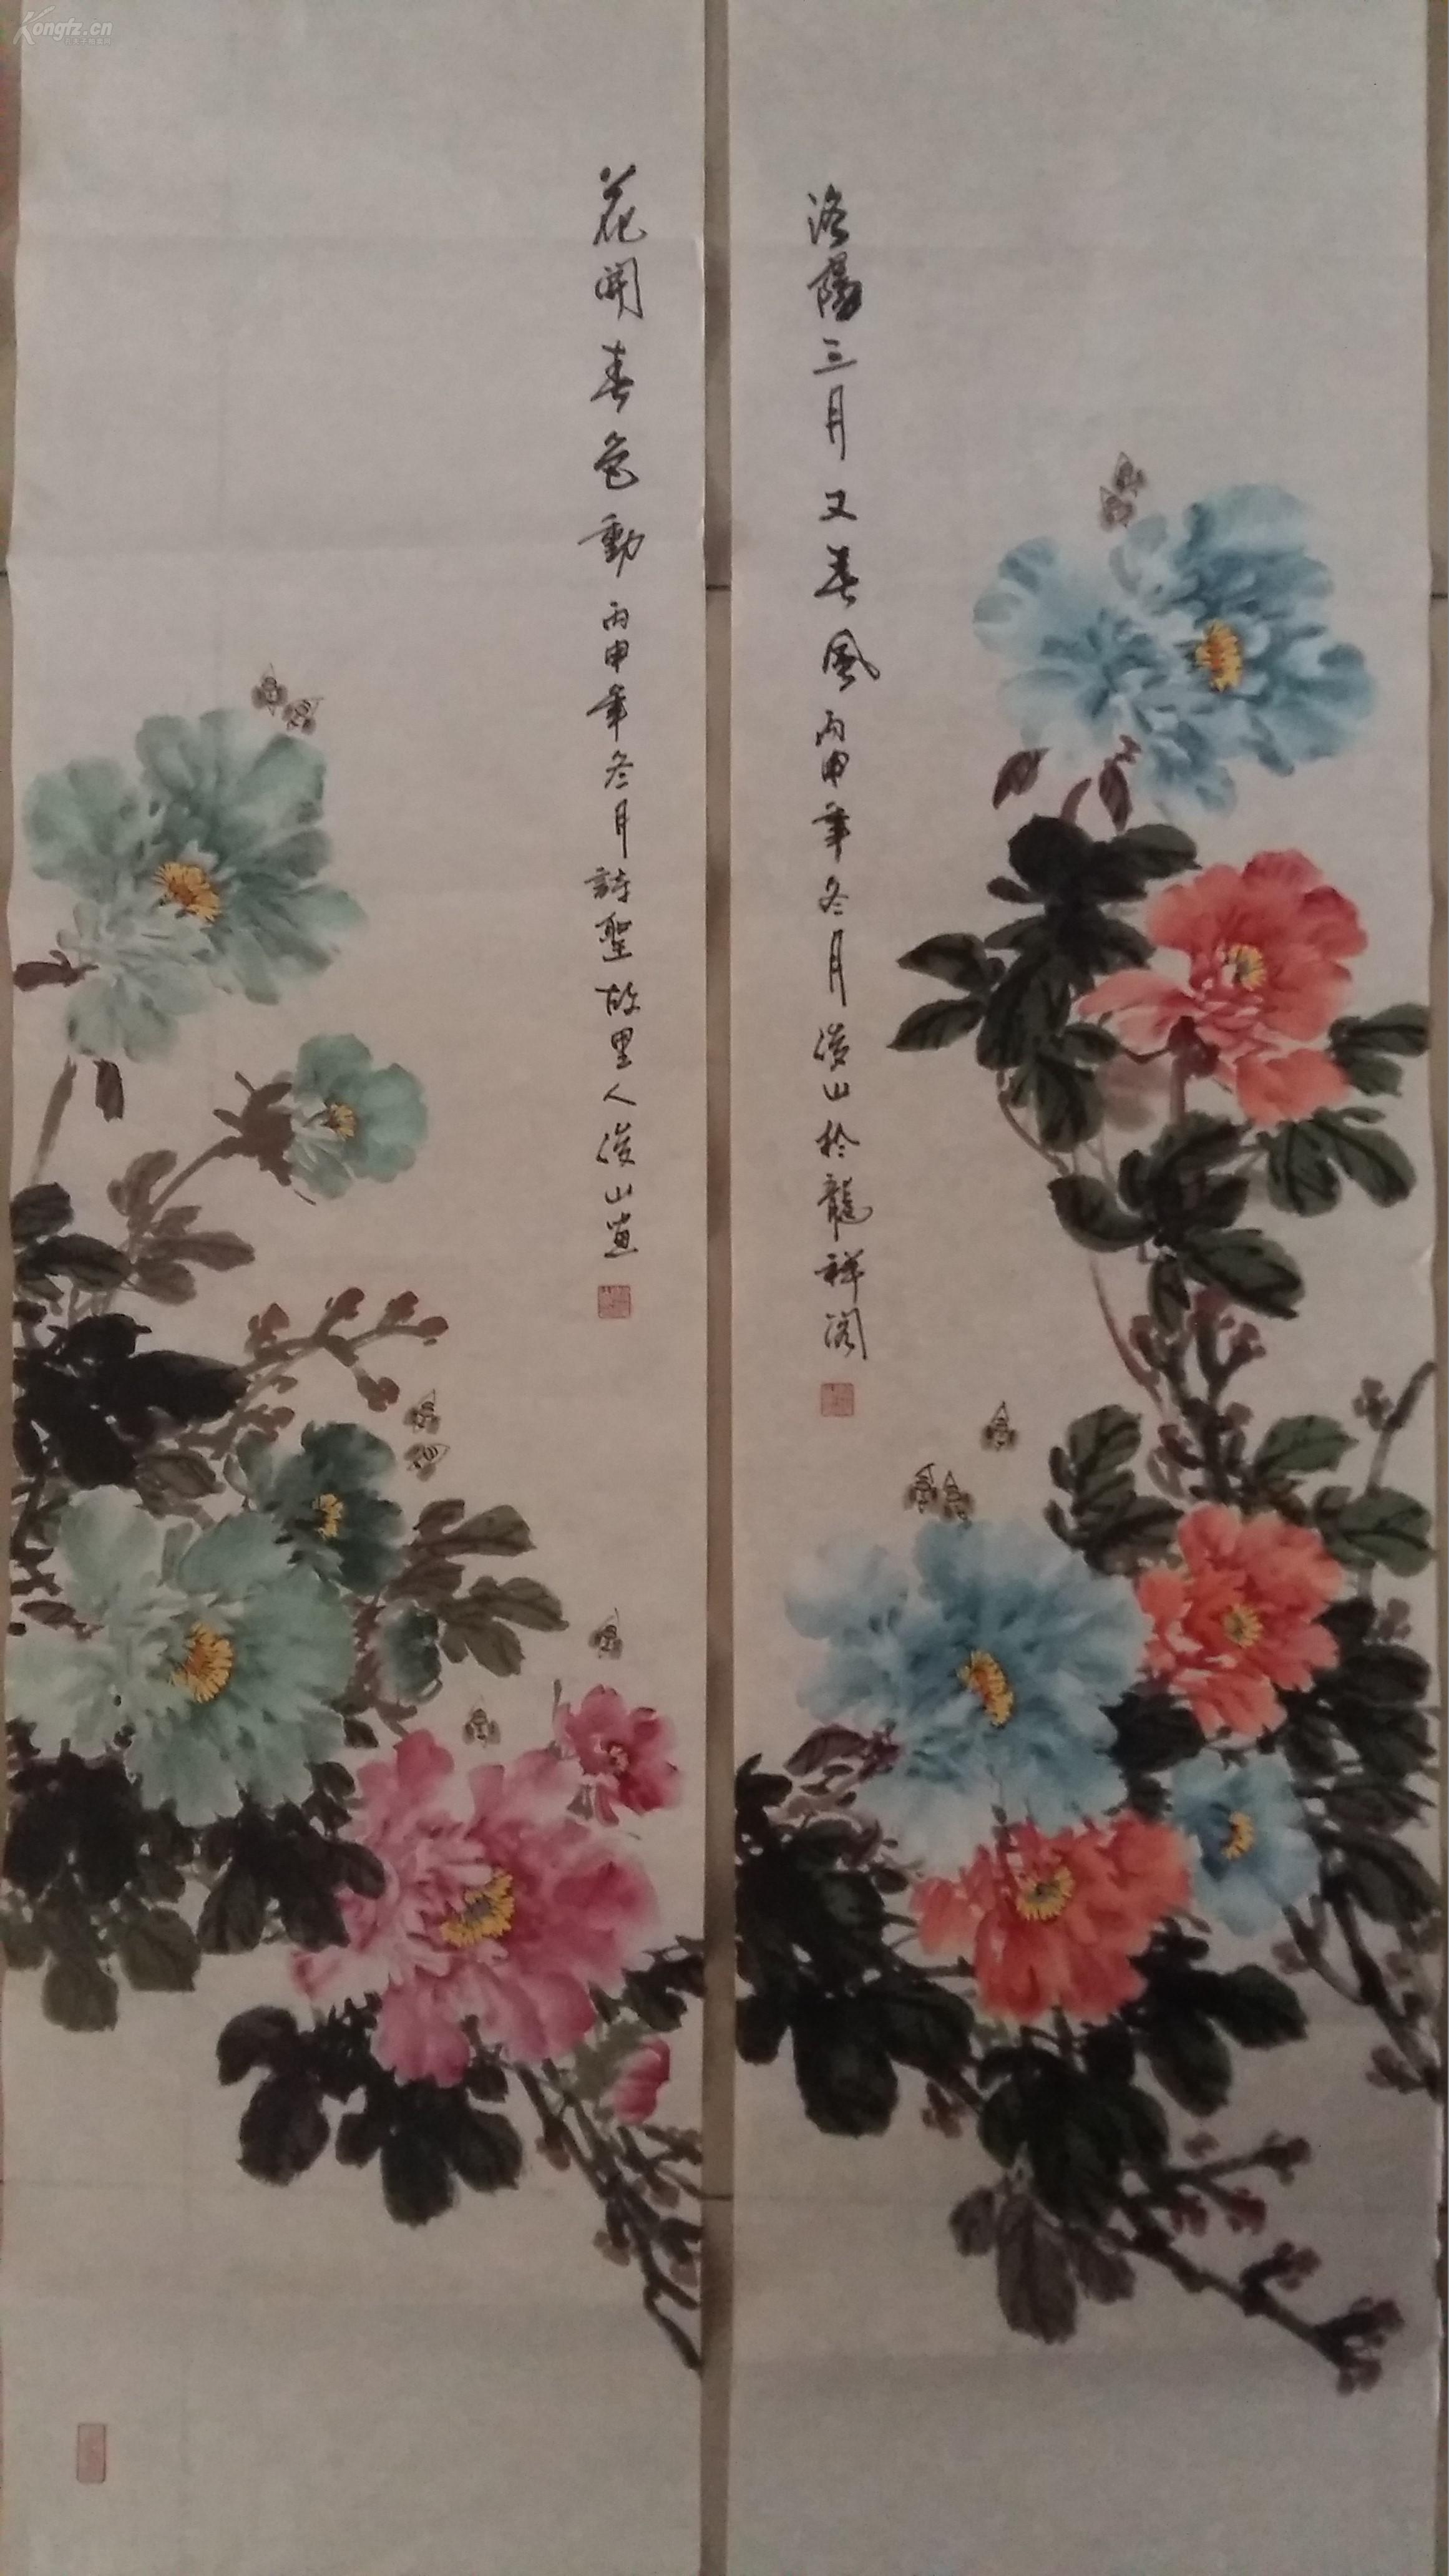 Kongfz.cn
洛陽三月又春風 丙申年冬月濬山於龍祥閣
花開春色動 丙申年冬月詩聖故里人濬山畫